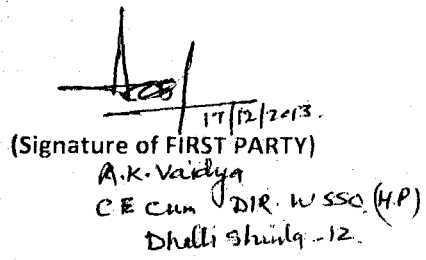 17/12/2013.
(Signature of FIRST PARTY)
A.K. Vaidya
C E Cum DIR. WSSO. (H.P)
Dhalli Shimla -12.